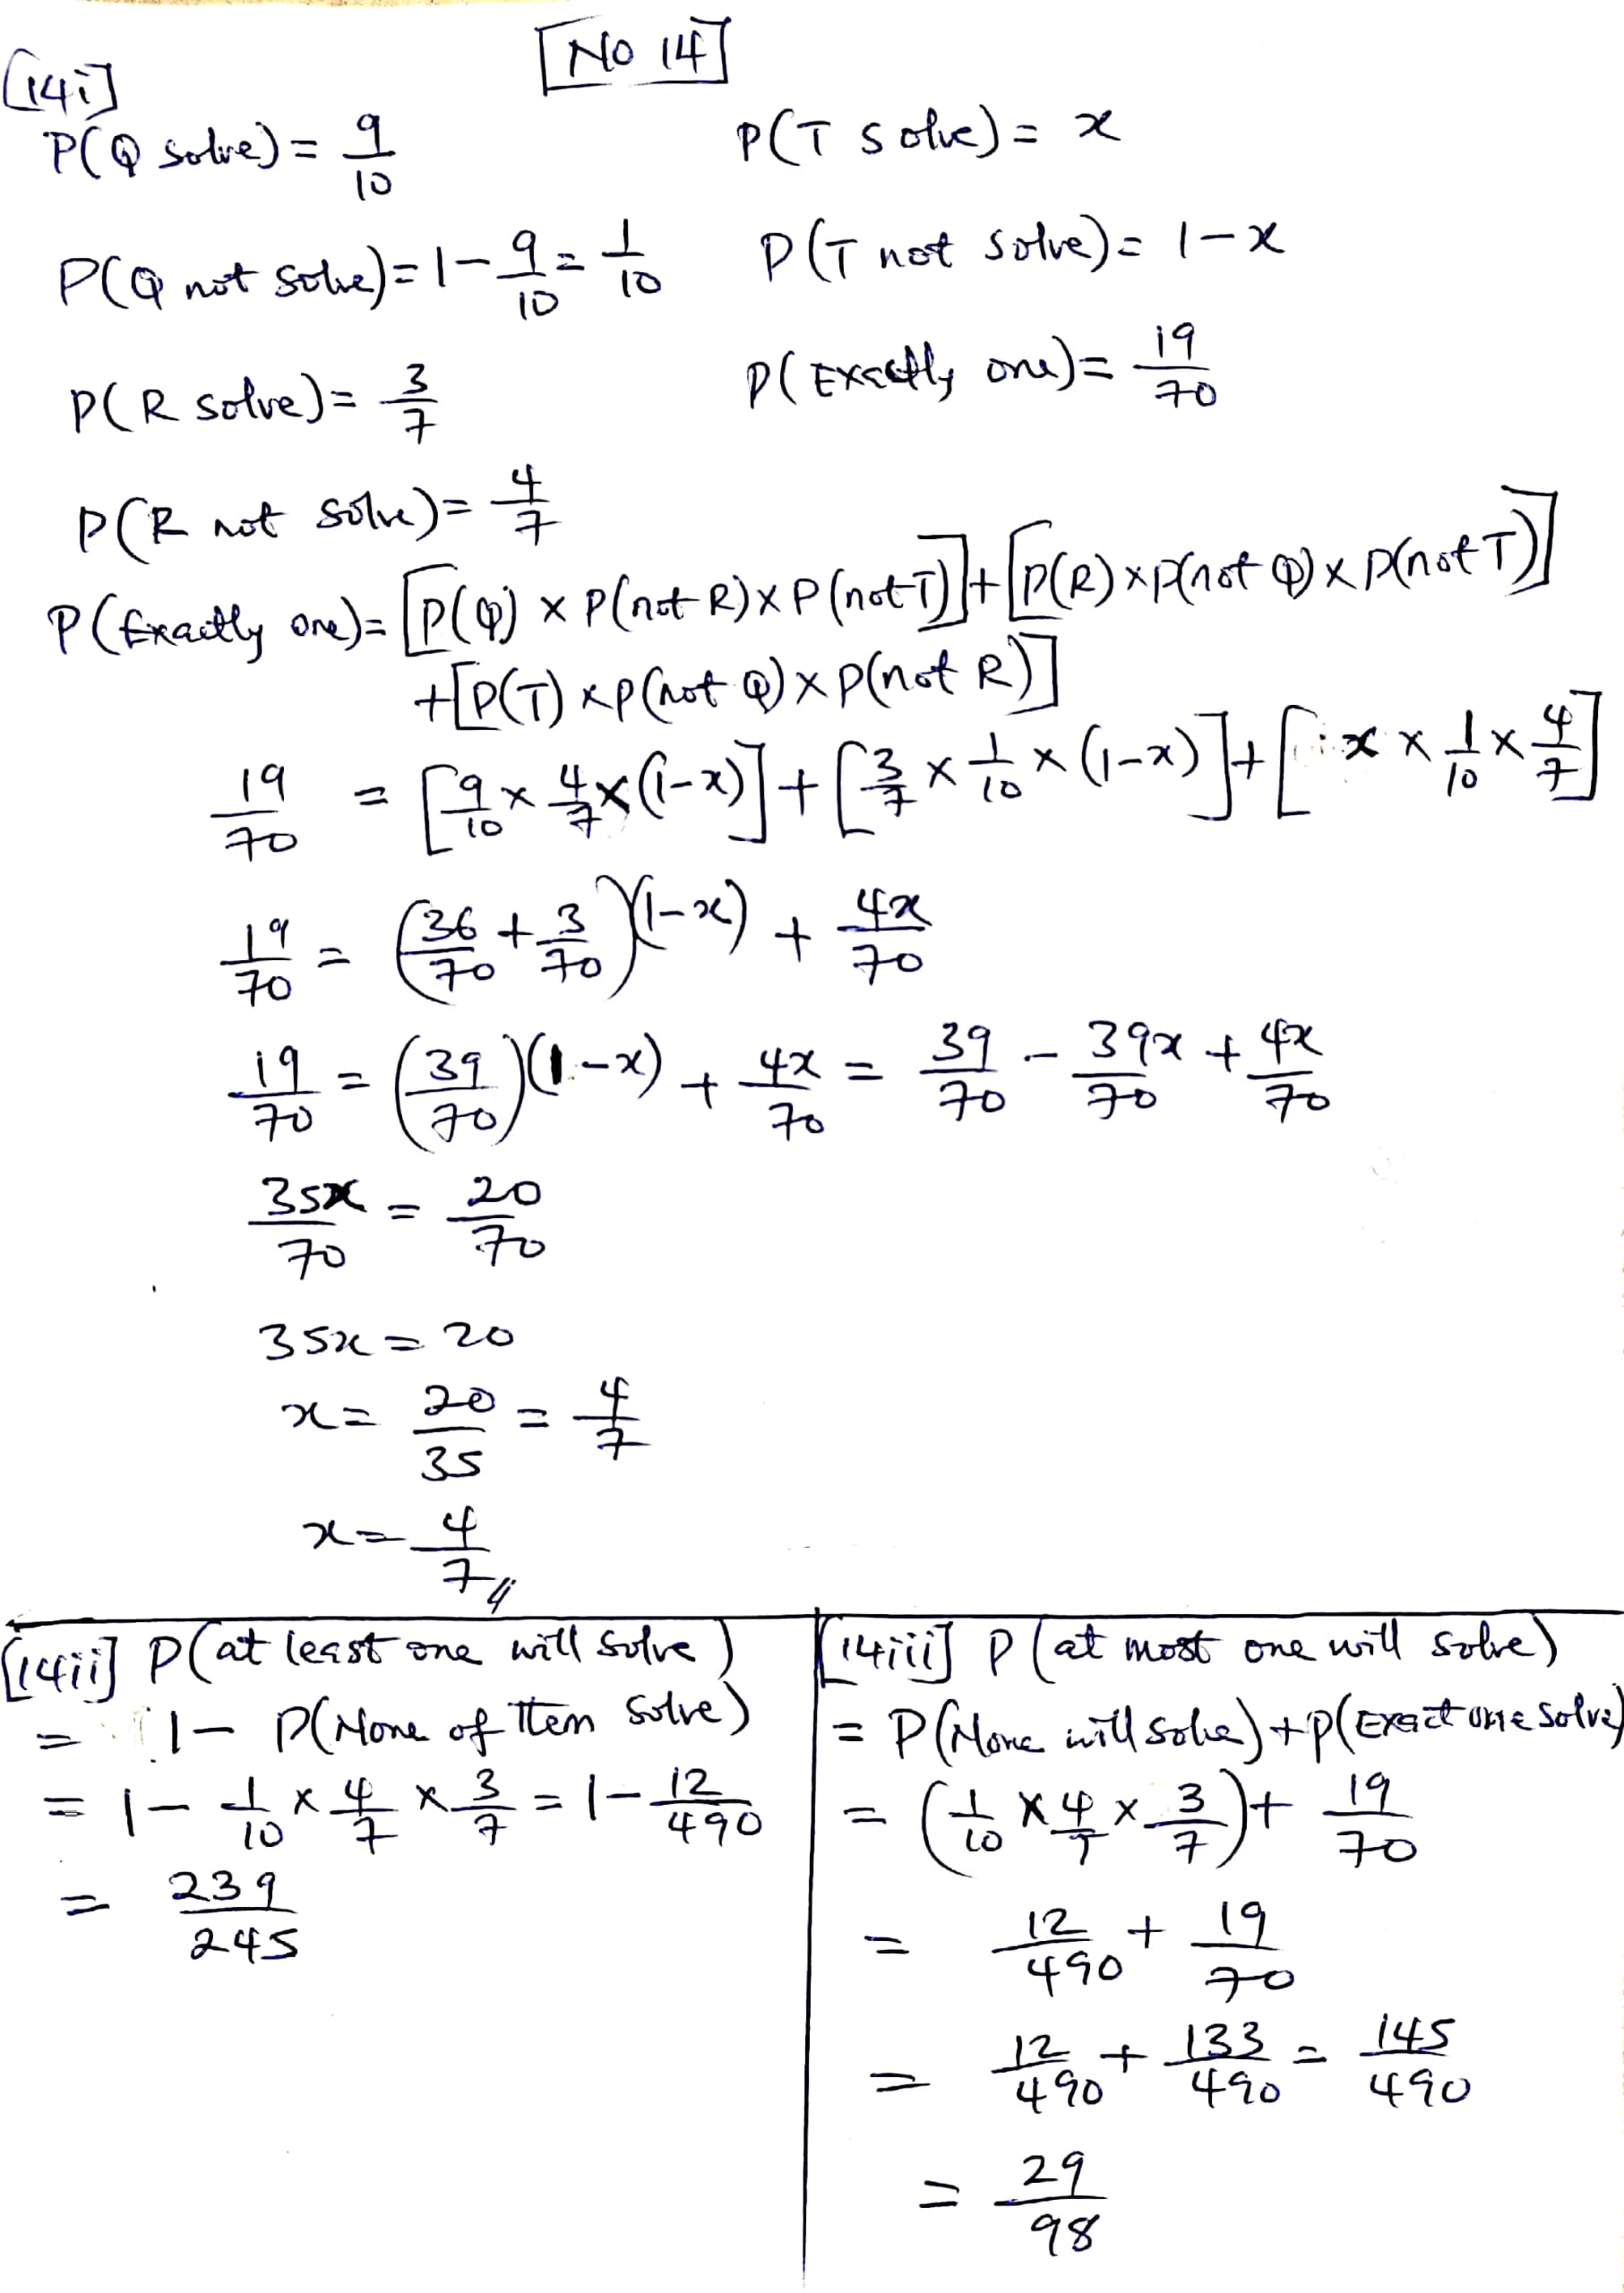 [No 14]
[14i]
P(Q solve) = 9/10
P(T solve) = x
P(Q not solve) = 1 - 9/10 = 1/10
P(T not solve) = 1 - x
P(R solve) = 3/7
P(Exactly one) = 19/70
P(R not solve) = 4/7
P(Exactly one) = [P(Q) × P(not R) × P(not T)] + [P(R) × P(not Q) × P(not T)]
+ [P(T) × P(not Q) × P(not R)]
19/70 = [9/10 × 4/7 × (1-x)] + [3/7 × 1/10 × (1-x)] + [x × 1/10 × 4/7]
19/70 = (36/70 + 3/70)(1-x) + 4x/70
19/70 = (39/70)(1-x) + 4x/70 = 39/70 - 39x/70 + 4x/70
35x/70 = 20/70
35x = 20
x = 20/35 = 4/7
x = 4/7
[14ii] P(at least one will solve)
= 1 - P(None of them solve)
= 1 - 1/10 × 4/7 × 3/7 = 1 - 12/490
= 239/245
[14iii] P(at most one will solve)
= P(None will solve) + P(Exact one solve)
= (1/10 × 4/7 × 3/7) + 19/70
= 12/490 + 19/70
= 12/490 + 133/490 = 145/490
= 29/98